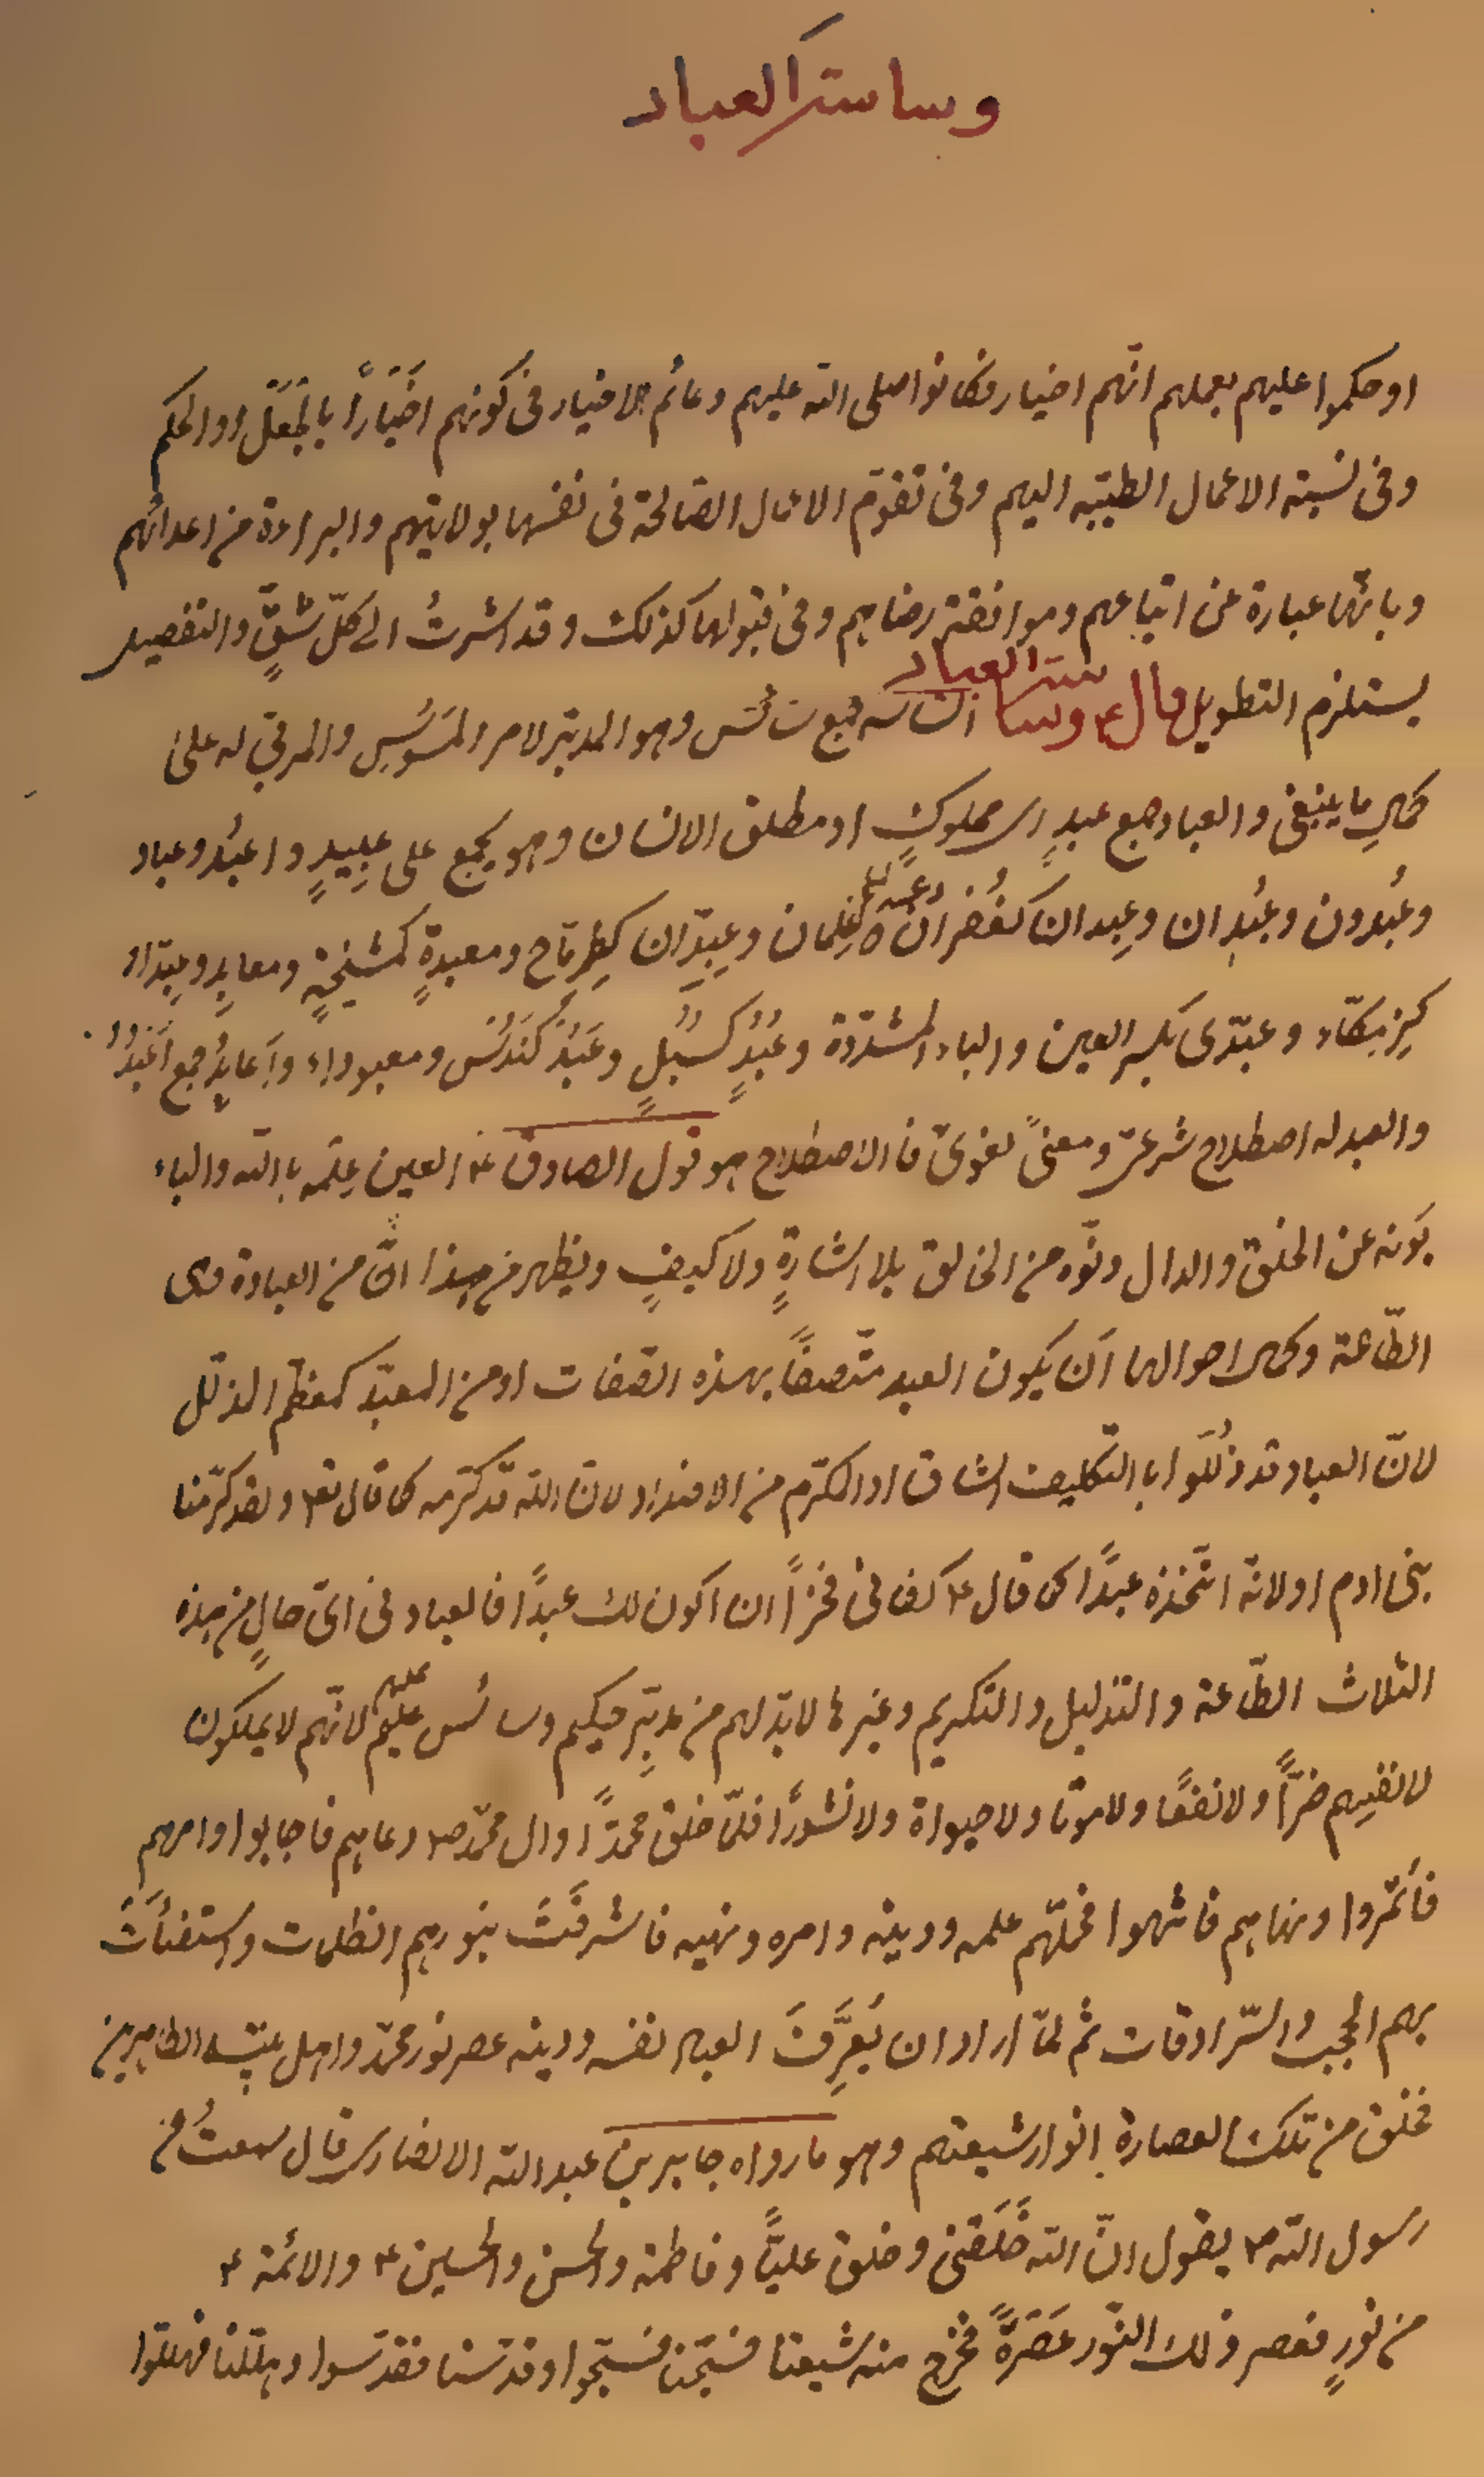 وساسة العباد
او حكموا عليهم بعملهم انّهم اخيار فكانوا صلى الله عليهم دعائم الاخيار فى كونهم اخيَاراً بالجَعْل او الحكم
وفى نسبة الاعمال الطيّبة اليهم وفى تقوّم الاعمال الصّالحة فى نفسها بولايتهم والبراءة من اعدائهم
وبانّها عبارة عن اتباعهم وموافقة رضاهم وفى قبولها كذلك وقد اشرتُ الى كلّ شقٍّ والتفصيل
يستلزم التطويل قال ع وساسة العباد السّاسة جمع سائس وهو المدبّر لامر المَسُوسِ والمربّى له على
كمالِ ما ينبغى والعباد جمع عبدٍ اى مملوكٍ او مطلق الانسان وهو يجمع على عبيدٍ واعبُد وعباد
وعُبدون وعُبدان وعِبدان كغُفران وغِلمان وعِبِدّان كطِرِمّاح ومعبدةٍ كمشيخةٍ ومعابدٍ وعبدّاء
كزِمِكّاء وعبدّى بكسر العين والباء المشدّدة وعُبُدٍ كسُبُلٍ وعَبُدٌ كنَدُسٌ ومعبوداء واَعابِدُ جمع اَعْبُدٍ
والعبد له اصطلاح شرعىّ ومعنىً لغوىّ فالاصطلاح هو قول الصادق ع العين علمه بالله والباء
بَونه عن الخلق والدال دنوّه من الخالق بلا اشارةٍ ولا كيفٍ ويظهر من هذا انّ من العبادة وهى
الطّاعة وكمال احوالها اَن يكون العبد متّصفاً بهذه الصّفات او من المعبّد كمعظّم المذلّل
لانّ العباد قد ذُلِّلوا بالتّكليف الشاق او المكرّم من الاضداد لانّ الله قد كرّمه كما قال تع ولقد كرّمنا
بنى ادم او لانّه اتّخذه عبدًا كما قال ع كفانى فخراً ان اكون لك عبدًا فالعباد فى اىّ حالٍ من هذه
الثلاث الطّاعة والتذليل والتكريم وغيرها لابدّ لهم من مدبّرٍ حكيم وسائس عليم لانّهم لا يملكون
لانفسهم ضرّاً ولا نفعًا ولا موتا ولا حيواة ولا نشورًا فلمّا خلق محمّدًا وال محمّد ص دعاهم فاجابوا وامرهم
فأتمروا ونهاهم فانتهوا فحمّلهم علمه ودينه وامره ونهيه فاشرقَتْ بنورهم الظلمات واستضاءَت
بهم الحجب والسّرادقات ثم لمّا اراد ان يُعَرِّفَ العباد نفسه ودينه عصر نور محمّد واهل بيته الطاهرين
فخلق من تلك العصارة انوار شيعتهم وهو ما رواه جابر بن عبد الله الانصارى قال سمعتُ من
رسول الله ص يقول انّ الله خَلَقنى وخلق عليّاً وفاطمة والحسن والحسين ع والائمّة ع
من نورٍ فعصر ذلك النّور عَصْرَةً فخرج منه شيعتنا فسبّحنا فسبّحوا وقدّسنا فقدّسوا وهلّلنا فهلّلوا